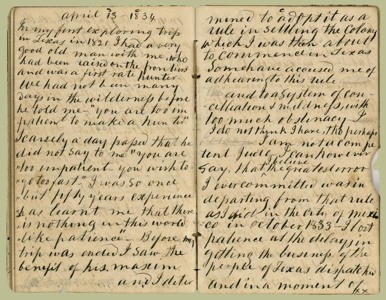 april 13 1834
In my first exploring trip
in Texas in 1821 I had a very
good old man with me, who
had been raised on the frontier
and was a first rate hunter.
We had not been many
days in the wilderness before
he told me "you are too im
patient to make a hunter"
Scarcely a day passed that he
did not say to me "you are
too impatient you wish to
go too fast." I was so once
but fifty years experience
has learnt me that there
is nothing in this world
like patience" Before my
trip was ended I saw the
benefit of his maxim
and I deter
mined to adopt it as a
rule in settling the Colony
which I was then about
to Commence in Texas
Some have accused me of
adhearing to this rule
and to a system of con
ciliation & mildness, with
too much obstinacy I
I do not think I have, tho perhaps
I am not a compe
tent judge. I can however
say, that the greatest error
I ever committed was in
departing from that rule
as I did in the City of Mexi
co in October 1833 I lost
patience at the delays in
getting the business of the
people of Texas dispatched
and in a moment of